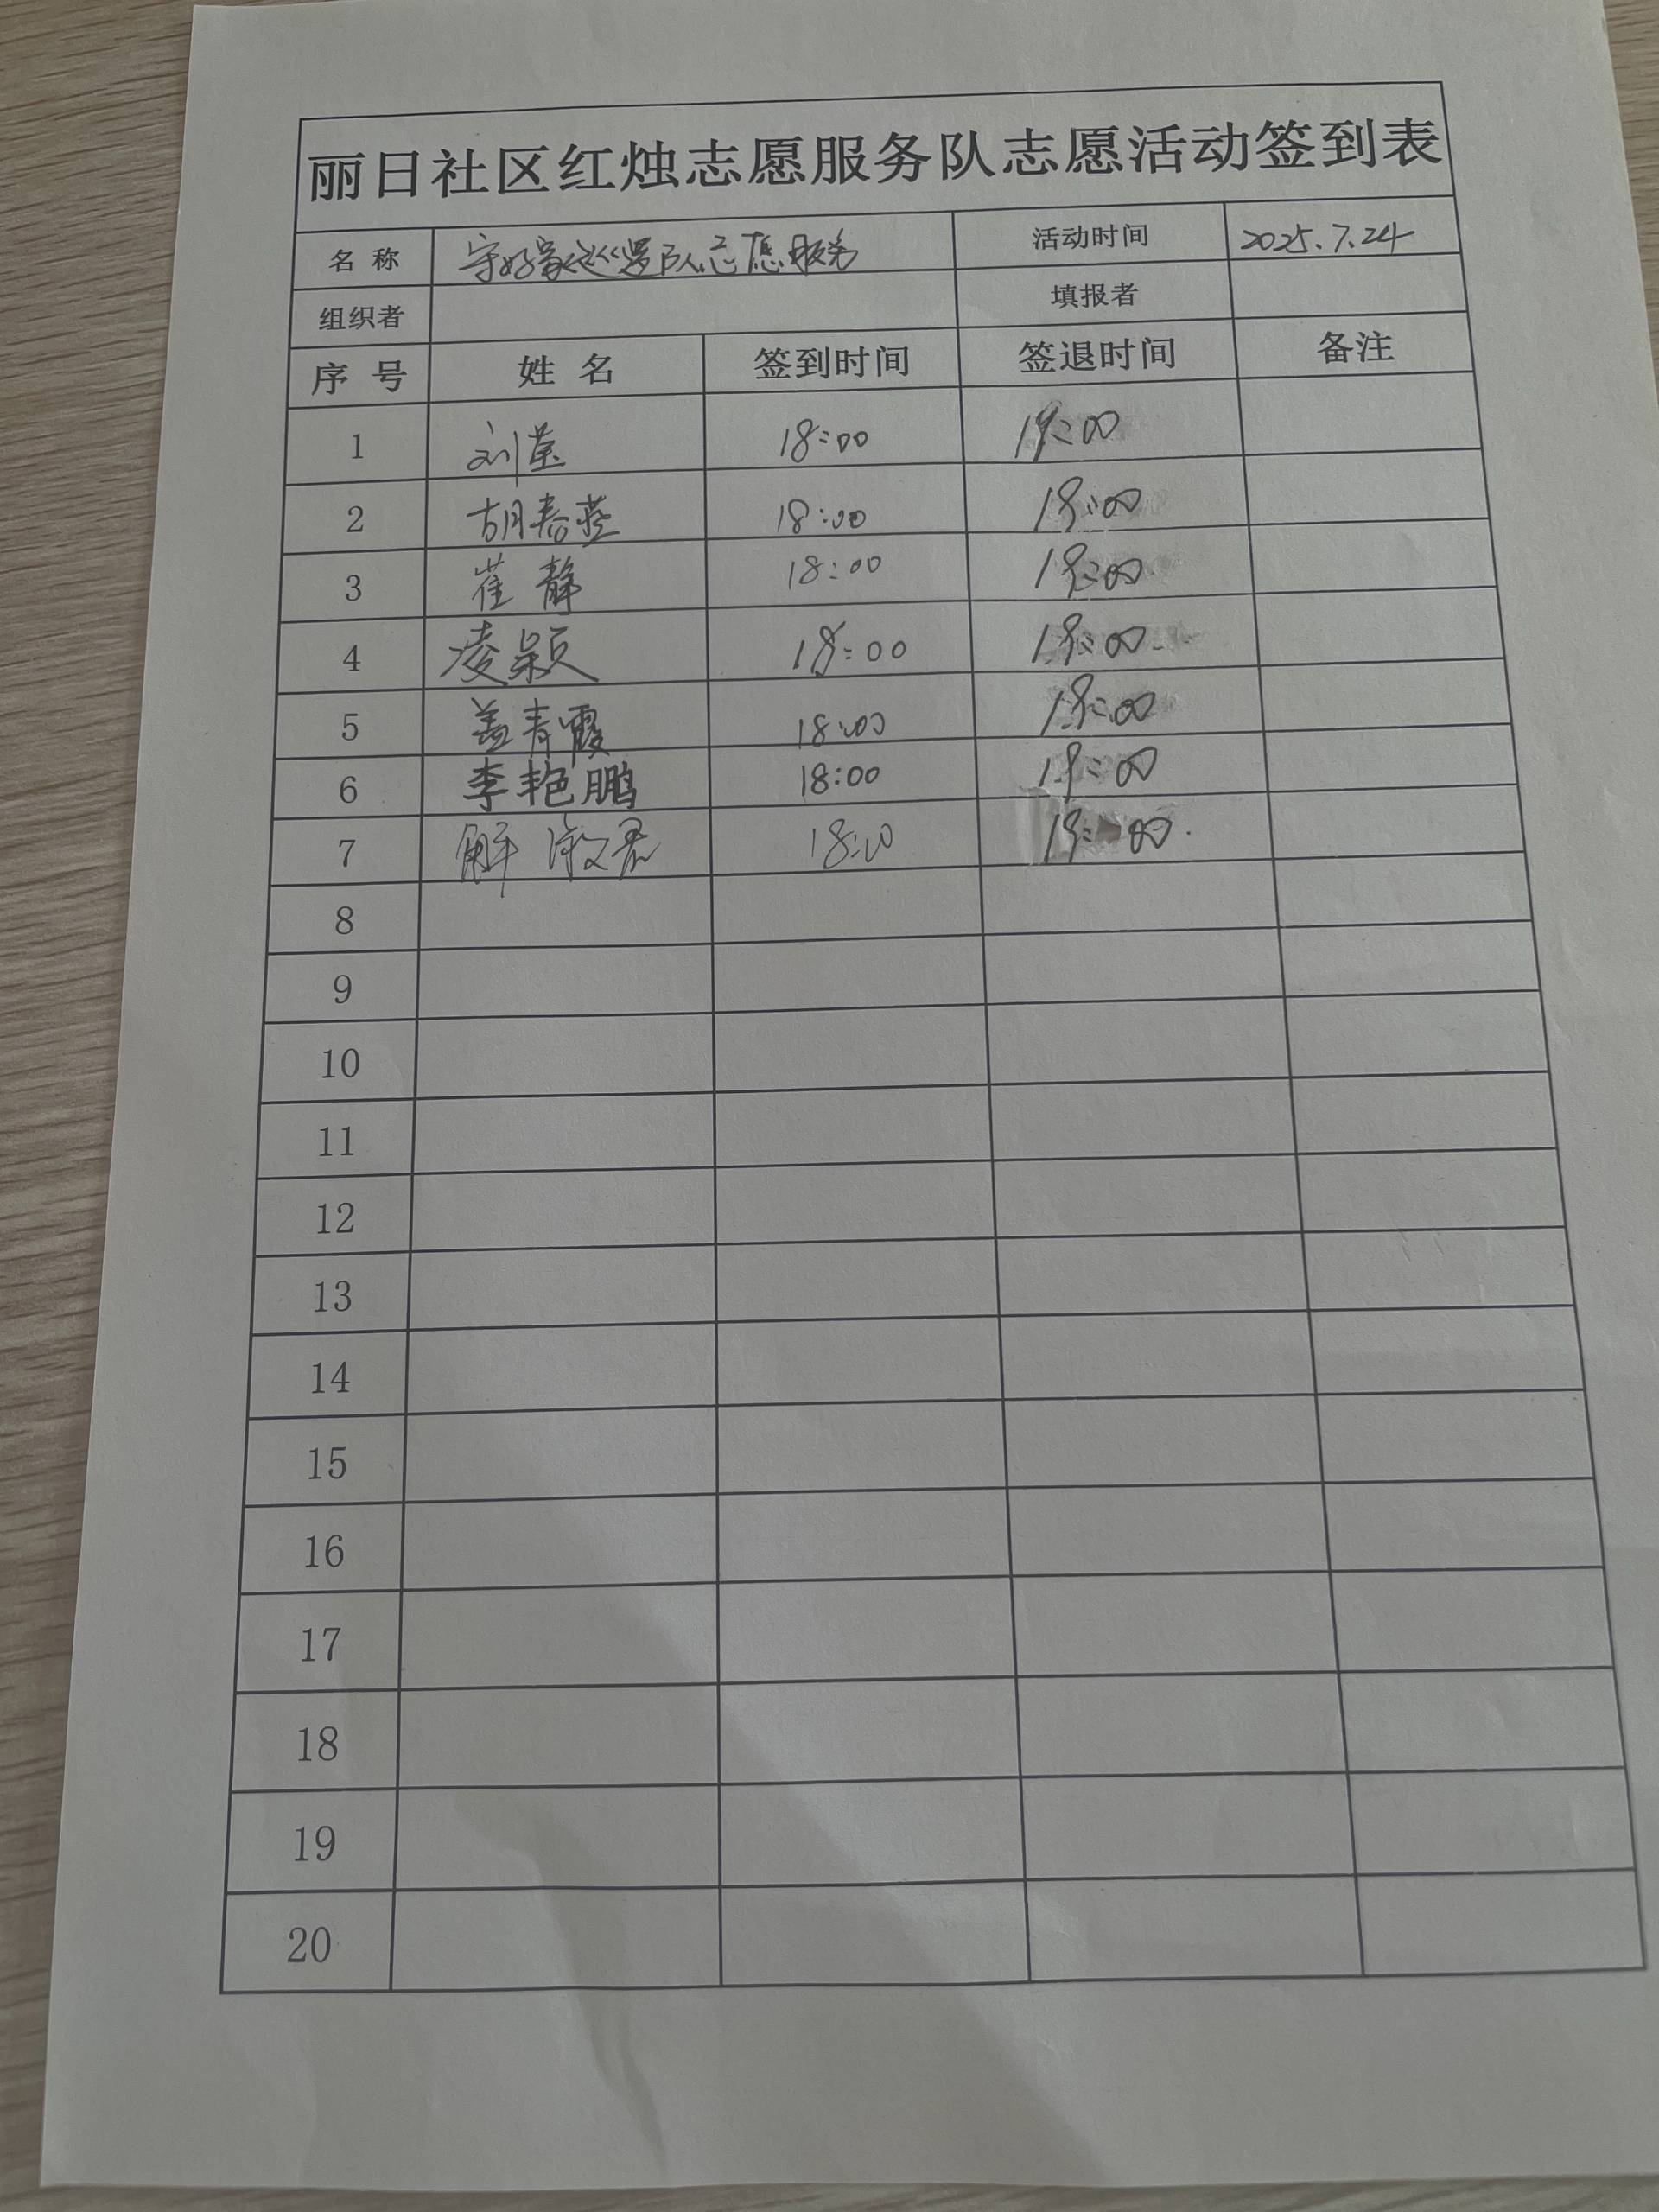 丽日社区红烛志愿服务队志愿活动签到表
名称 守好家巡逻队志愿服务 活动时间 2025.7.24
组织者 填报者
序号 姓名 签到时间 签退时间 备注
1 刘莹 18:00 19:00
2 胡春燕 18:00 19:00
3 崔静 18:00 19:00
4 凌颖 18:00 19:00
5 盖青霞 18:00 19:00
6 李艳鹏 18:00 19:00
7 解淑君 18:00 19:00
8
9
10
11
12
13
14
15
16
17
18
19
20